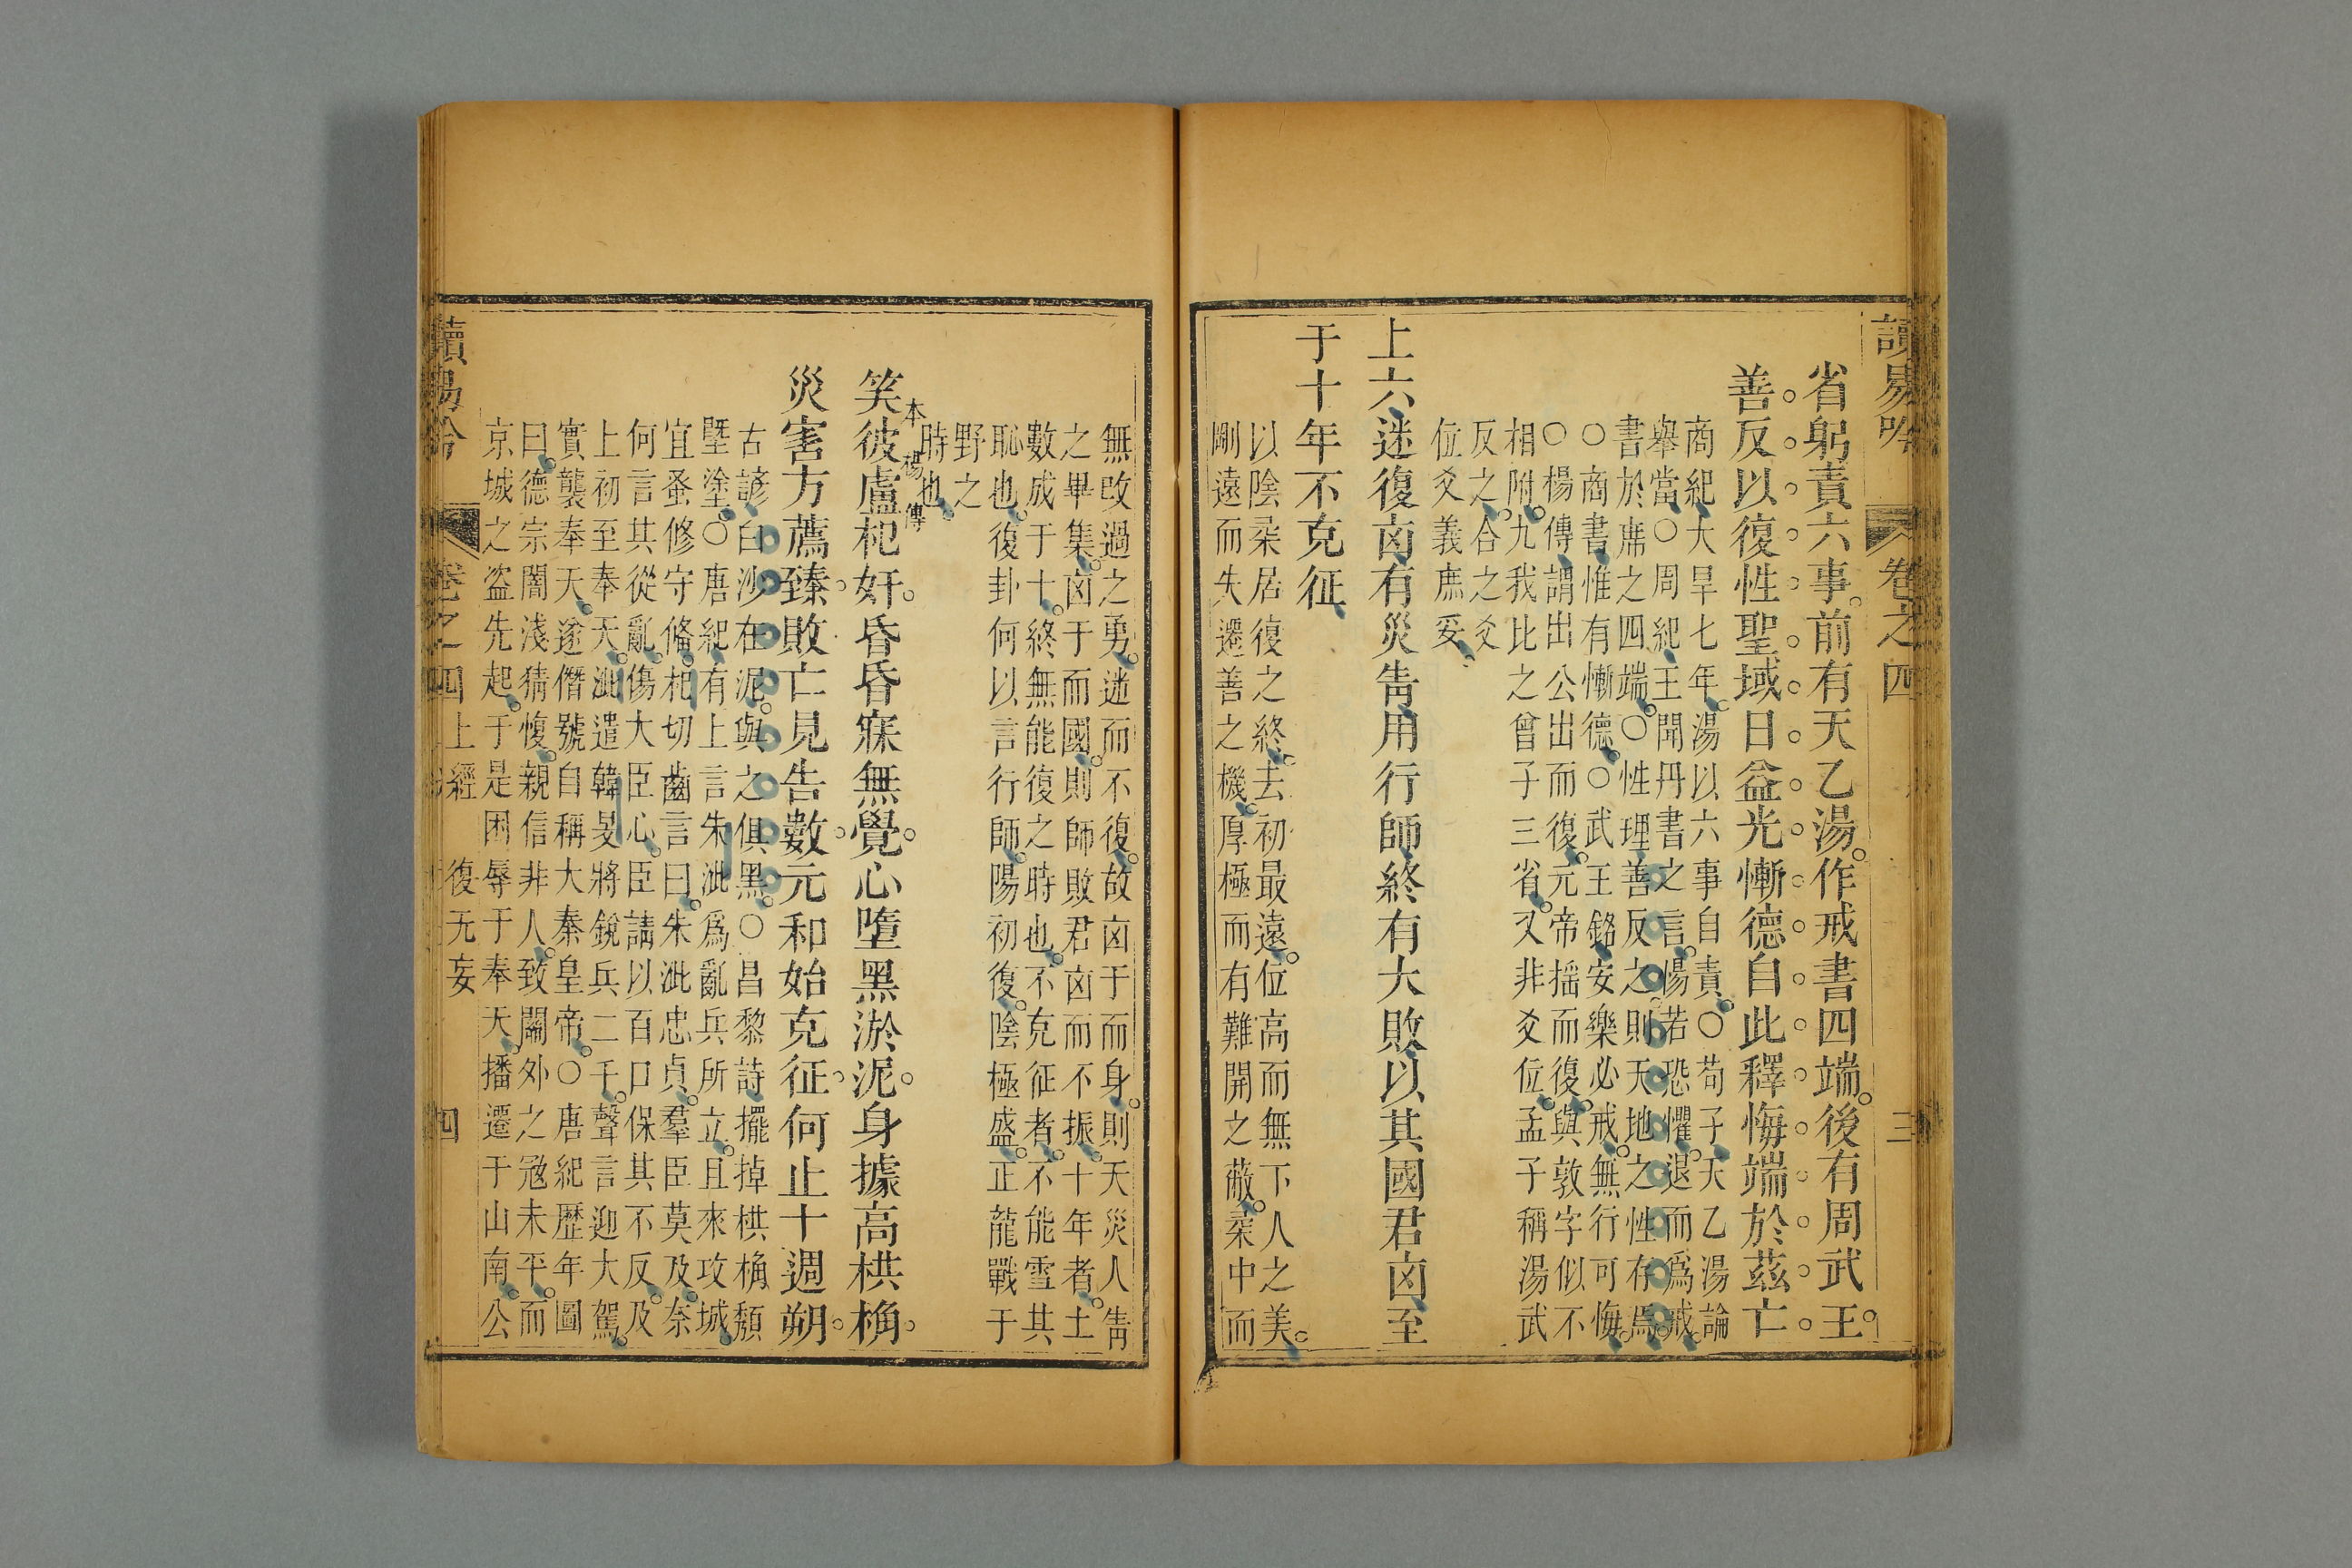 讀易吟
卷之四
三
省躬責六事。前有天乙湯。作戒書四端。後有周武王。
善反以復性聖域日益光慚德自此釋悔端於茲亡
商紀大旱七年。湯以六事自責。○荀子天乙湯論
舉當○周紀王聞丹書之言。惕若恐懼。退而爲戒
書於席之四端。○性理善反之則天地之性存焉
○商書惟有慚德。○武王銘安樂必戒。無行可悔。
○楊傳謂出公出而復。元帝搖而復。與敦字似不
相附。九我比之曾子三省。又非爻位。孟子稱湯武
反之。合之爻
位爻義庶妥
上六迷復凶有災眚用行師終有大敗以其國君凶至
于十年不克征
以陰柔居復之終。去初最遠。位高而無下人之美。
剛遠而失遷善之機。厚極而有難開之蔽。柔中而
無改過之勇。迷而不復。故凶于而身。則天災人眚
之畢集。凶于而國。則師敗君凶而不振。十年者。土
數成于十。終無能復之時也。不克征者。不能雪其
恥也。復卦何以言行師。陽初復。陰極盛。正龍戰于
野之
時也
本楊傳
笑彼盧杞奸。昏昏寐無覺。心墮黑淤泥。身據高栱桷。
災害方薦臻。敗亡見告數。元和始克征。何止十週朔。
古諺白沙在泥。與之俱黑。○昌黎詩擺掉栱桷頹
塈塗。○唐紀有上言朱泚爲亂兵所立。且來攻城
宜蚤修守備。杞切齒言曰。朱泚忠貞。羣臣莫及。奈
何言其從亂。傷大臣心。臣請以百口保其不反。及
上初至奉天。泚遣韓旻將銳兵二千。聲言迎大駕。
實襲奉天。遂僭號自稱大秦皇帝。○唐紀歷年圖
曰。德宗闇淺猜愎。親信非人。致闕外之寇未平。而
京城之盜先起。于是困辱于奉天。播遷于山南。公
讀易吟
卷之四
上經
復无妄
四